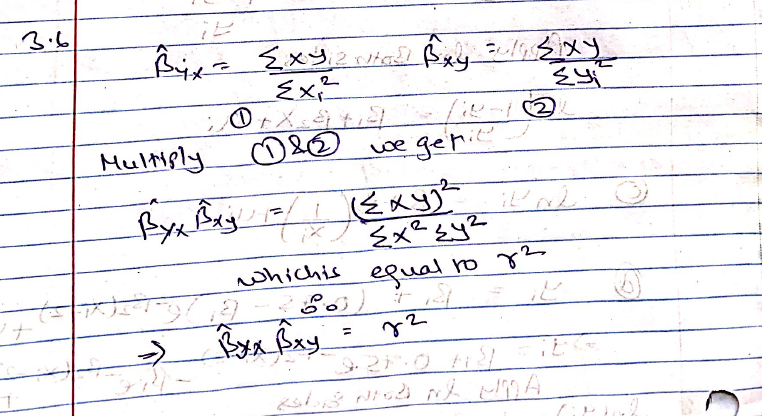 3.6
β̂yx = Σxy / Σxᵢ² β̂xy = Σxy / Σyᵢ²
① ②
Multiply ① & ② we get
β̂yx β̂xy = (Σxy)² / Σx² Σy²
which is equal to r²
∴
⇒ β̂yx β̂xy = r²